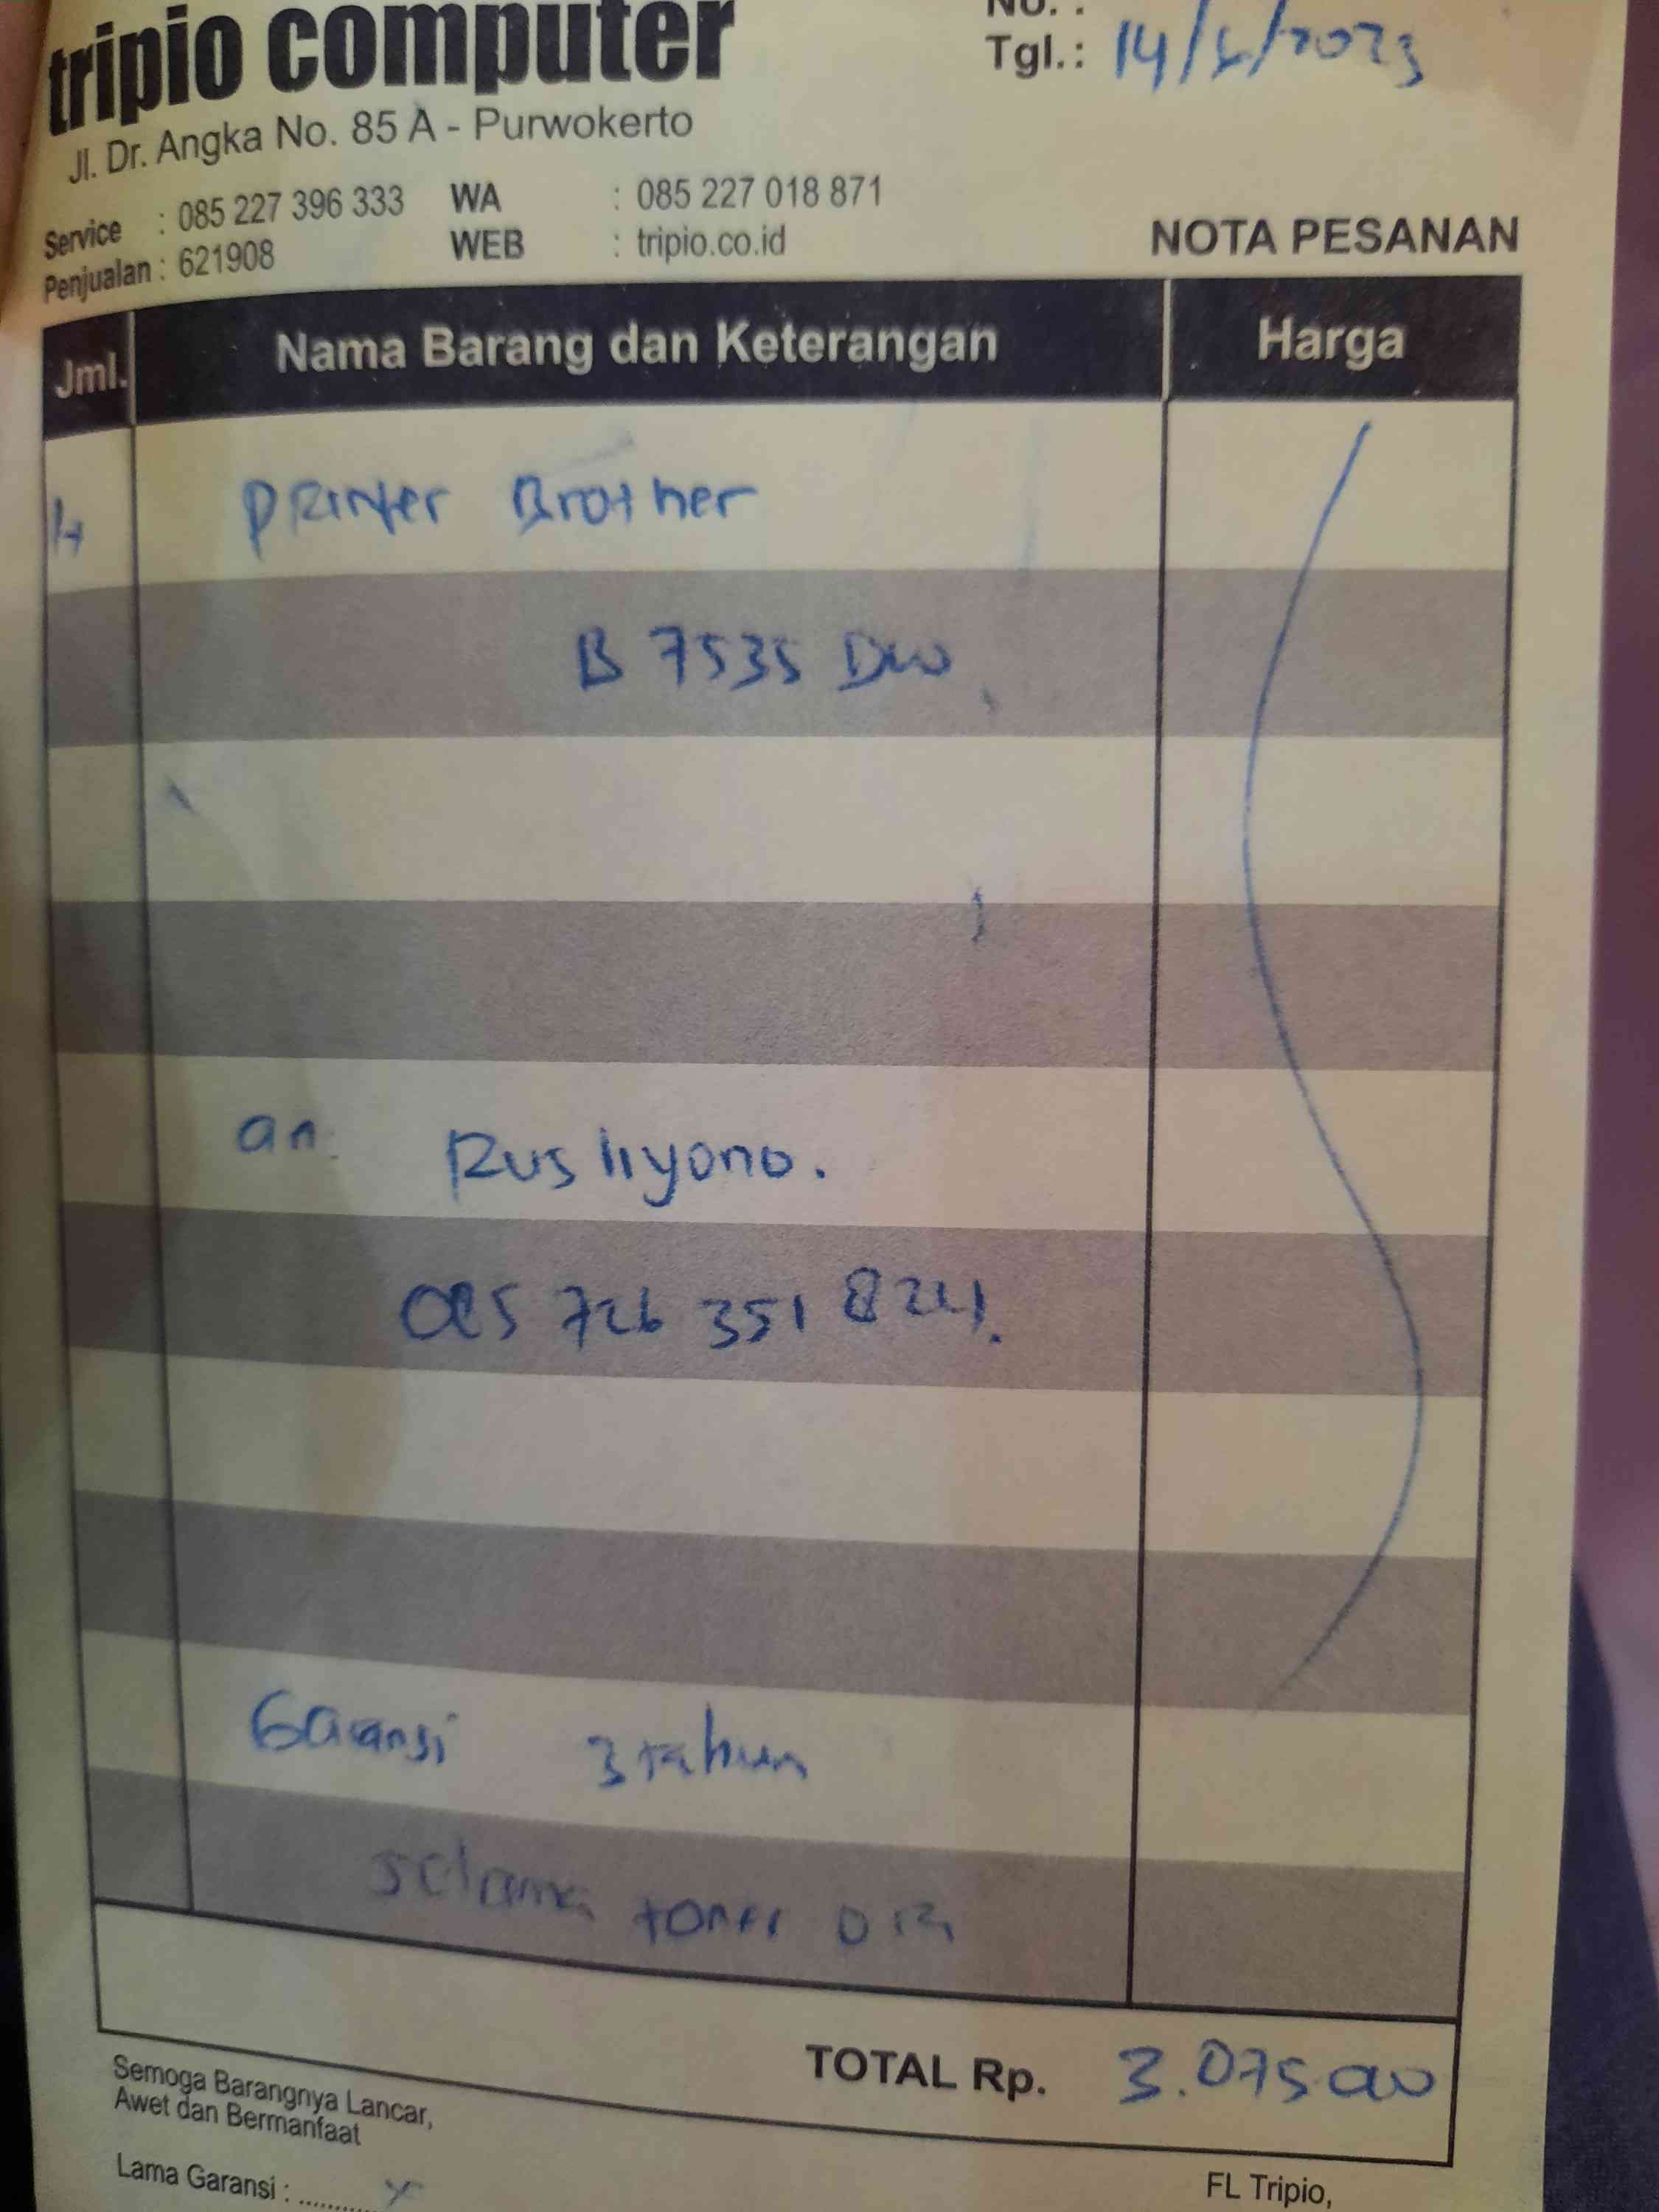 tripio computer
No. :
Tgl.: 14/6/2023
Jl. Dr. Angka No. 85 A - Purwokerto
Service : 085 227 396 333 WA : 085 227 018 871
Penjualan : 621908 WEB : tripio.co.id
NOTA PESANAN
Jml. Nama Barang dan Keterangan Harga
Printer Brother
B 7535 DW
an. Rusliyono.
085 726 351 824.
Garansi 3 tahun
selama toner ori
TOTAL Rp. 3.075.000
Semoga Barangnya Lancar,
Awet dan Bermanfaat
Lama Garansi : ..........
FL Tripio,